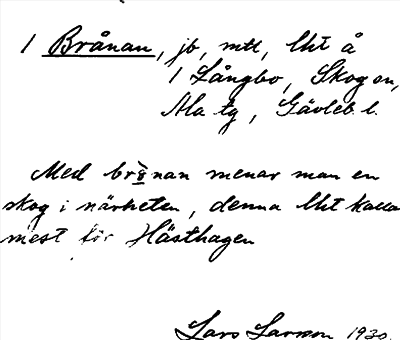 1 Brånan, jb, mtl, lht å
1 Långbo, Skogen,
Ala tg, Gävleb. l.
Med brånan menar man en
skog i närheten, denna lht kallas
mest för Hästhagen
Lars Larsson 1930.